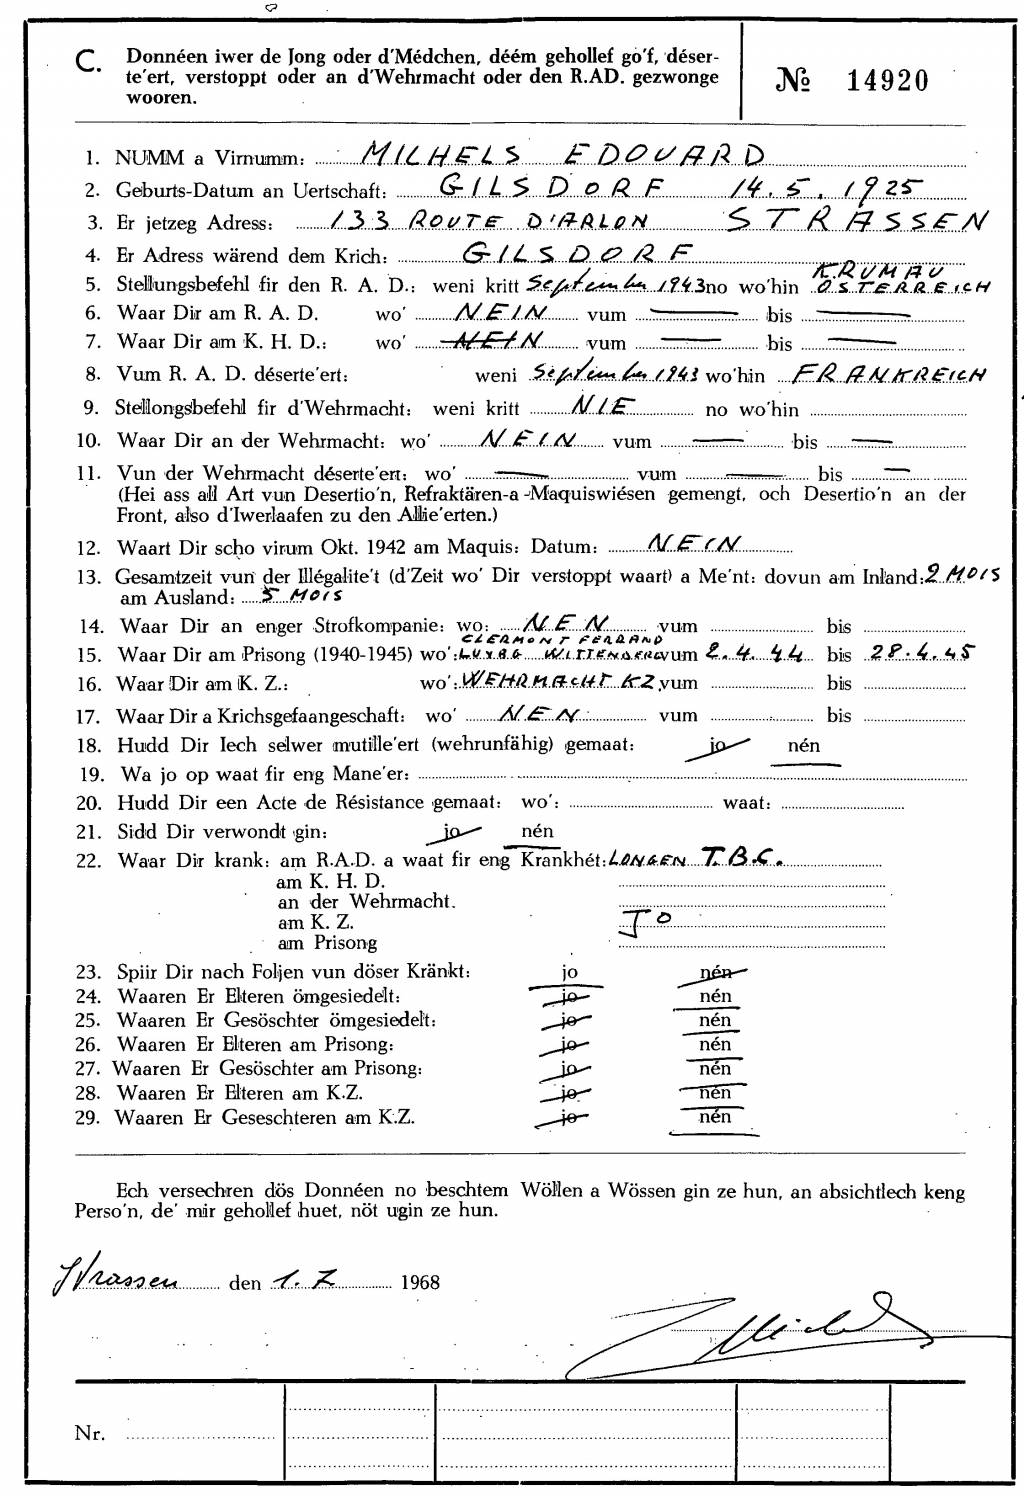 C. Donnéen iwer de Jong oder d'Médchen, déém gehollef go'f, déser-
te'ert, verstoppt oder an d'Wehrmacht oder den R.AD. gezwonge
wooren.
№ 14920
1. NUMM a Virnumm: MILHELS EDOUARD
2. Geburts-Datum an Uertschaft: GILSDORF 14.5.1925
3. Er jetzeg Adress: 133 ROUTE D'ARLON STRASSEN
4. Er Adress wärend dem Krich: GILSDORF
KRUMAU
5. Stellungsbefehl fir den R. A. D.: weni kritt September 1943 no wo'hin ÖSTERREICH
6. Waar Dir am R. A. D. wo' NEIN vum — bis —
7. Waar Dir am K. H. D.: wo' NEIN vum — bis —
8. Vum R. A. D. déserte'ert: weni September 1943 wo'hin FRANKREICH
9. Stellongsbefehl fir d'Wehrmacht: weni kritt NIE no wo'hin
10. Waar Dir an der Wehrmacht: wo' NEIN vum — bis —
11. Vun der Wehrmacht déserte'ert: wo' — vum — bis —
(Hei ass all Art vun Desertio'n, Refraktären-a -Maquiswiésen gemengt, och Desertio'n an der
Front, also d'Iwerlaafen zu den Allie'erten.)
12. Waart Dir scho virum Okt. 1942 am Maquis: Datum: NEIN
13. Gesamtzeit vun der Illégalite't (d'Zeit wo' Dir verstoppt waart) a Me'nt: dovun am Inland: 2 MOIS
am Ausland: 5 MOIS
14. Waar Dir an enger Strofkompanie: wo: NEN vum bis
CLERMONT FERRAND
15. Waar Dir am Prison͏g (1940-1945) wo': LUXBG WITTENBERG vum 2.4.44 bis 28.4.45
16. Waar Dir am K. Z.: wo': WEHRMACHT KZ vum bis
17. Waar Dir a Krichsgefaangeschaft: wo' NEN vum bis
18. Hudd Dir Iech selwer mutille'ert (wehrunfähig) gemaat: jo nén
19. Wa jo op waat fir eng Mane'er:
20. Hudd Dir een Acte de Résistance gemaat: wo': waat:
21. Sidd Dir verwondt gin: jo nén
22. Waar Dir krank: am R.A.D. a waat fir eng Krankhét: LONGEN T.B.C.
am K. H. D.
an der Wehrmacht.
am K. Z. JO
am Prisong
23. Spiir Dir nach Foljen vun döser Kränkt: jo nén
24. Waaren Er Elteren ömgesiedelt: jo nén
25. Waaren Er Gesöschter ömgesiedelt: jo nén
26. Waaren Er Elteren am Prisong: jo nén
27. Waaren Er Gesöschter am Prisong: jo nén
28. Waaren Er Elteren am K.Z. jo nén
29. Waaren Er Geseschteren am K.Z. jo nén
Ech versechren dös Donnéen no beschtem Wöllen a Wössen gin ze hun, an absichtlech keng
Perso'n, de' mir gehollef huet, nöt ugin ze hun.
Strassen den 1.7 1968
Nr.